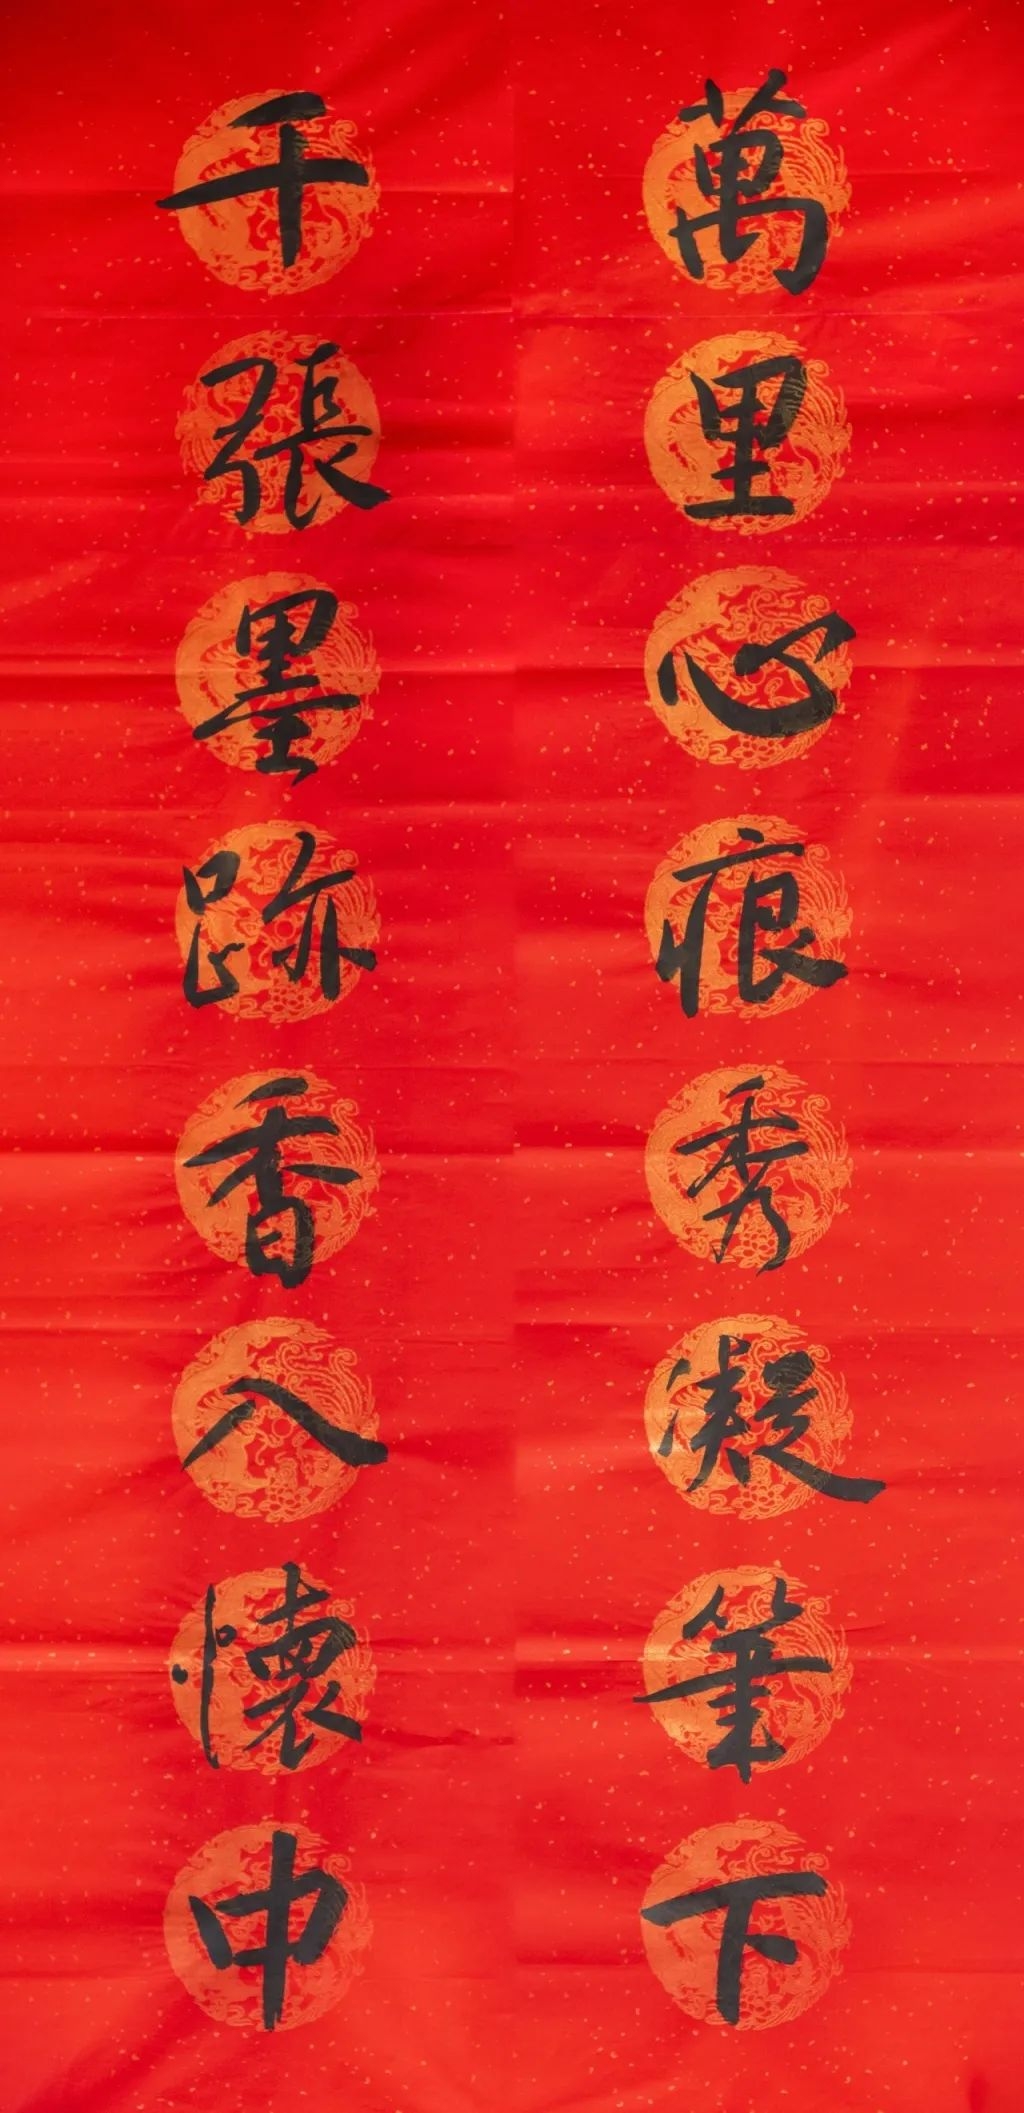 萬里心痕秀凝筆下
千張墨跡香入懷中